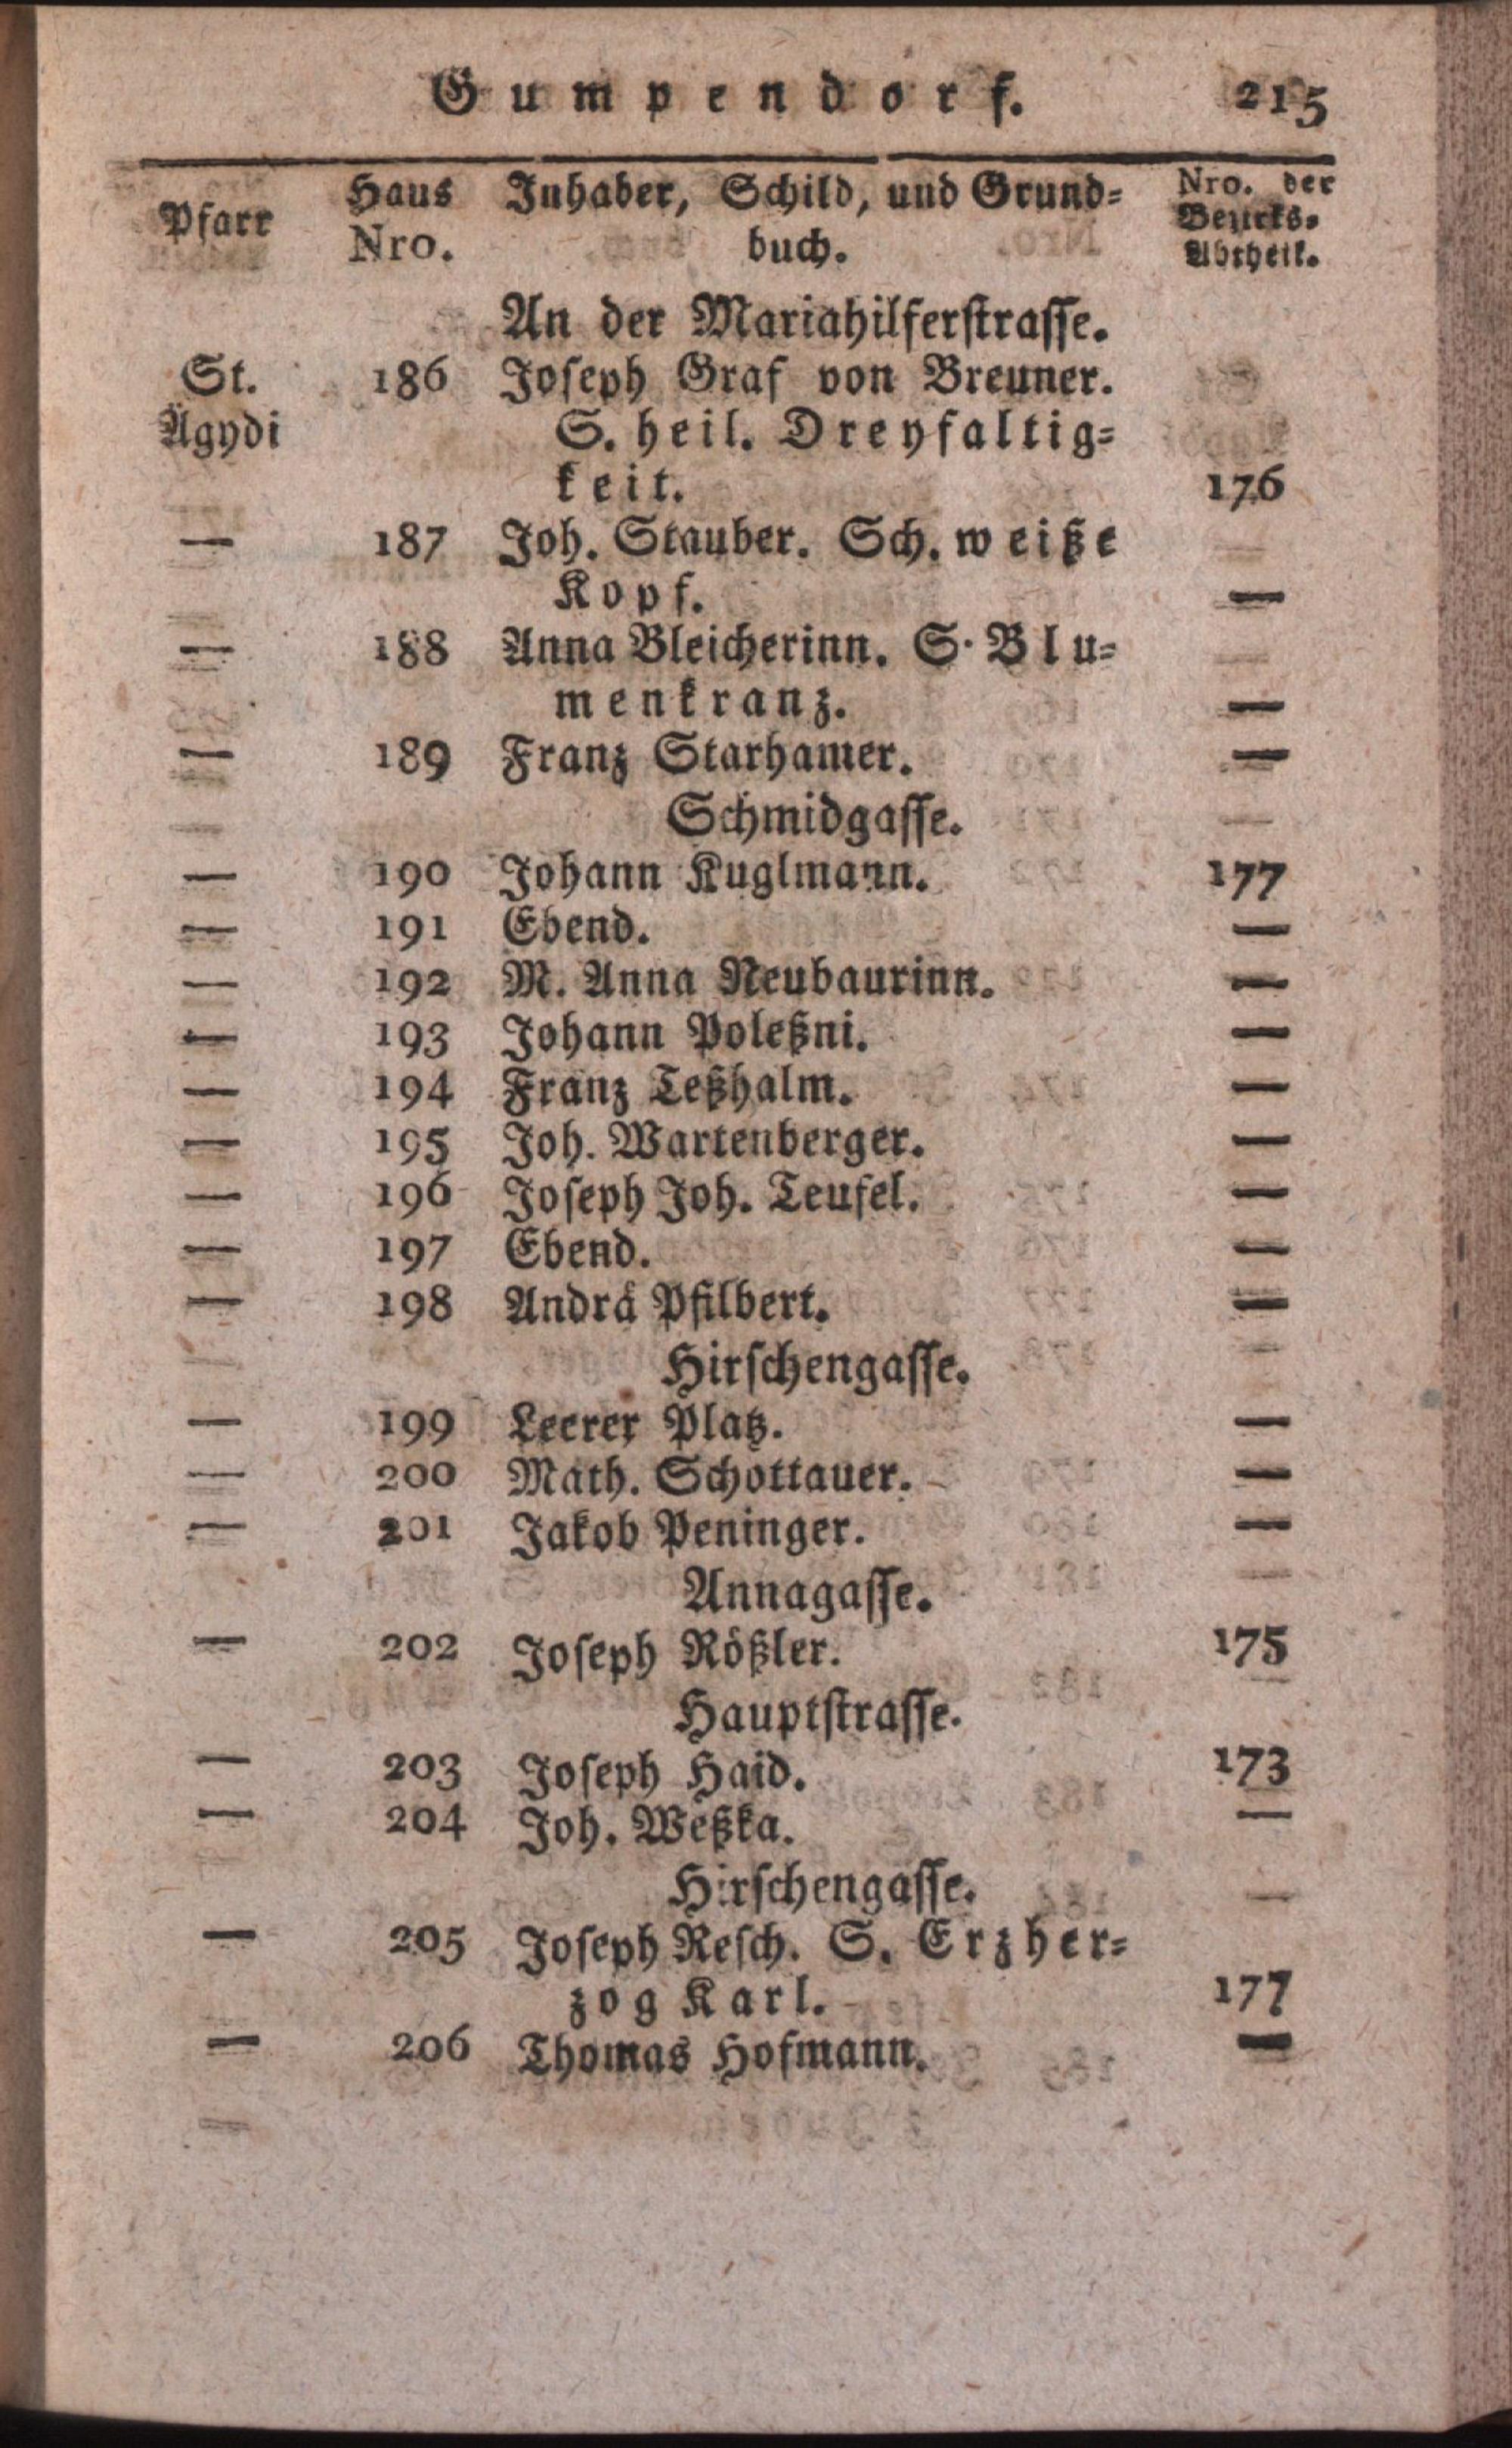 Gumpendorf. 215
Pfarr Haus Nro. Inhaber, Schild, und Grund= Nro. der Bezirks-
buch. Abtheil.
An der Mariahilferstrasse.
St. 186 Joseph Graf von Breuner.
Ägydi S. heil. Dreyfaltig=
keit. 176
— 187 Joh. Stauber. Sch. weiße
Kopf. —
— 188 Anna Bleicherinn. S. Blu=
menkranz. —
— 189 Franz Starhamer. —
Schmidgasse.
— 190 Johann Kuglmann. 177
— 191 Ebend. —
— 192 M. Anna Neubaurinn. —
— 193 Johann Poleßni. —
— 194 Franz Teßhalm. —
— 195 Joh. Wartenberger. —
— 196 Joseph Joh. Teufel. —
— 197 Ebend. —
— 198 Andrä Pfilbert. —
Hirschengasse.
— 199 Leerer Platz. —
— 200 Math. Schottauer. —
— 201 Jakob Peninger. —
Annagasse.
— 202 Joseph Rößler. 175
Hauptstrasse.
— 203 Joseph Haid. 173
— 204 Joh. Weßka. —
Hirschengasse.
— 205 Joseph Resch. S. Erzher=
zog Karl. 177
— 206 Thomas Hofmann. —